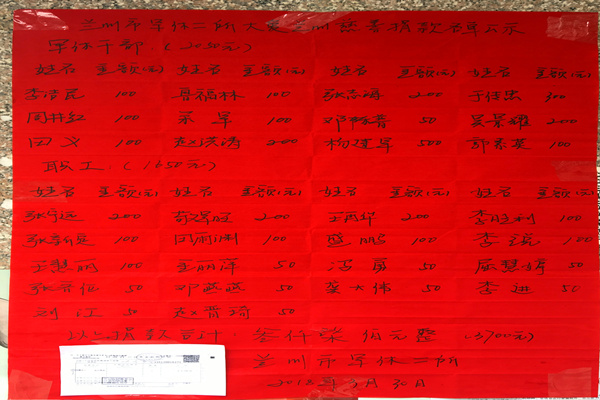 兰州市军休二所大爱兰州慈善捐款名单公示
军休干部（2050元）
姓名 金额(元) 姓名 金额(元) 姓名 金额(元) 姓名 金额(元)
李清民 100 吕福林 100 200 于佳忠 300
周井红 100 军 100 50 吴景耀 200
田义 100 赵洪涛 200 杨建军 500 郭素英 100
职工（1650元）
姓名 金额(元) 姓名 金额(元) 姓名 金额(元) 姓名 金额(元)
200 200 王丙华 200 李胜利 100
100 田丽琳 100 盛鹏 100 李 100
王慧丽 100 金丽萍 50 冯勇 50 屈慧婷 50
50 邓 50 窦大伟 50 李进 50
刘江 50 赵晋琦 50
以上捐款合计：叁仟柒佰元整（3700元）
兰州市军休二所
2018年9月30日